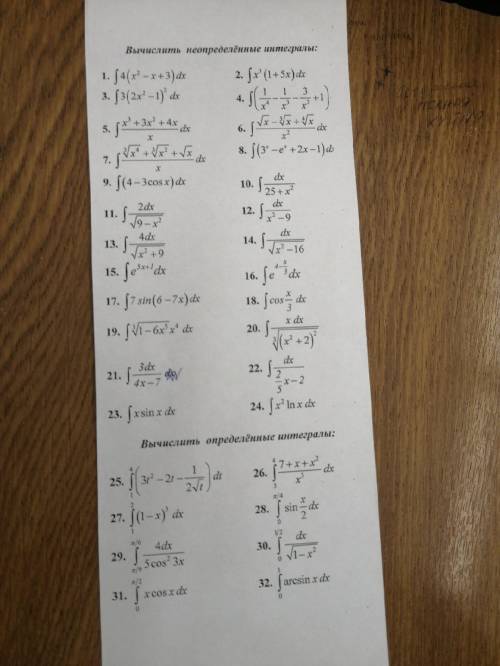 Вычислить неопределённые интегралы:
1. ∫4(x² − x + 3)dx 2. ∫x³(1+5x)dx
3. ∫3(2x² − 1)² dx 4. ∫(1/x⁴ − 1/x³ − 3/x² + 1)
5. ∫(x³ + 3x² + 4x)/x dx 6. ∫(√x − ∛x + ∜x)/x² dx
7. ∫(∛x⁴ + ∛x² + √x)/x dx 8. ∫(3ˣ − eˣ + 2x − 1)d
9. ∫(4 − 3cos x)dx 10. ∫dx/(25 + x²)
11. ∫2dx/√(9 − x²) 12. ∫dx/(x² − 9)
13. ∫4dx/√(x² + 9) 14. ∫dx/√(x² − 16)
15. ∫e^(5x+1) dx 16. ∫e^(4 − x/3) dx
17. ∫7 sin(6 − 7x)dx 18. ∫cos x/3 dx
19. ∫√(1 − 6x⁵) x⁴ dx 20. ∫x dx/∛((x² + 2)²)
21. ∫3dx/(4x − 7) 22. ∫dx/(2/5 x − 2)
23. ∫x sin x dx 24. ∫x² ln x dx
Вычислить определённые интегралы:
25. ∫₁⁴(3t² − 2t − 1/(2√t))dt 26. ∫₃⁴(7 + x + x²)/x³ dx
27. ∫₁²(1 − x)³ dx 28. ∫₀^(π/4) sin x/2 dx
29. ∫_(π/9)^(π/6) 4dx/(5cos² 3x) 30. ∫₀^(1/2) dx/√(1 − x²)
31. ∫₀^(π/2) x cos x dx 32. ∫₀¹ arcsin x dx